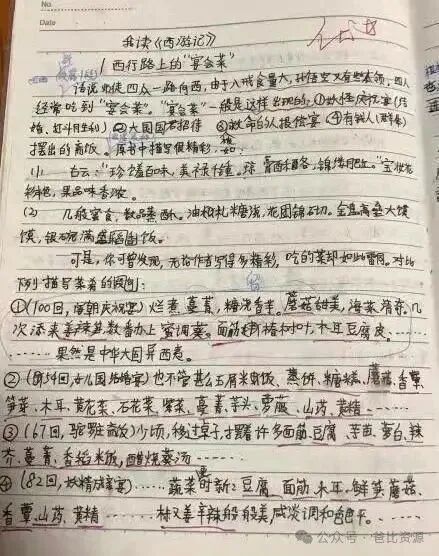 No.
Date
我读《西游记》
1 西行路上的“宴会菜”
话说师徒四众一路向西,由于八戒食量大,孙悟空又有些本领,四人
经常吃到“宴会菜”。“宴会菜”一般是这样出现的:①妖怪庆饮宴(结
婚、好斗日生和)②大国国君招待 ③救命的人报偿宴 ④有钱人(群众)
摆出的斋饭。原书中描写很精彩,如:
(1) 古云:“珍馐百味,美禄千钟。琼膏酥酪,锦缕肥红。”宝妆花
彩艳,果品味香浓。
(2) 几般蜜食,数品蒸酥。油札糖浇,花团锦砌。金盘高垒大馍
馍,银碗满盛稻饭。
可是,你可曾发现,无论作者写得多精彩,吃的菜却如此雷同。对比
下列描写菜肴的段间:
①(100回,唐朝庆祝宴)烂煮蔓菁,糖浇香芋。蘑菇甜美,海菜清奇。几
次添来姜辣笋,数番办上蜜调葵。面筋椿树叶,木耳豆腐皮。
……果然是中华大国异西夷。
②(第54回,女儿国结婚宴)也不管甚么玉屑米饭、蒸饼、糖糕、蘑菇、香蕈、
笋芽、木耳、黄花菜、石花菜、紫菜、蔓菁、芋头、萝菔、山药、黄精……
③(67回,驼罗庄斋饭)少顷,移过桌子,摆着许多面筋、豆腐、芋苗、萝白、辣
芥、蔓菁、香稻米饭,醋烧葵汤……
④(82回,妖精庆宴)……蔬菜更时新:豆腐、面筋、木耳、鲜笋、蘑菇、
香蕈、山药、黄精…… 椒姜辛辣般般美,咸淡调和色色平。
公众号·爸比资源